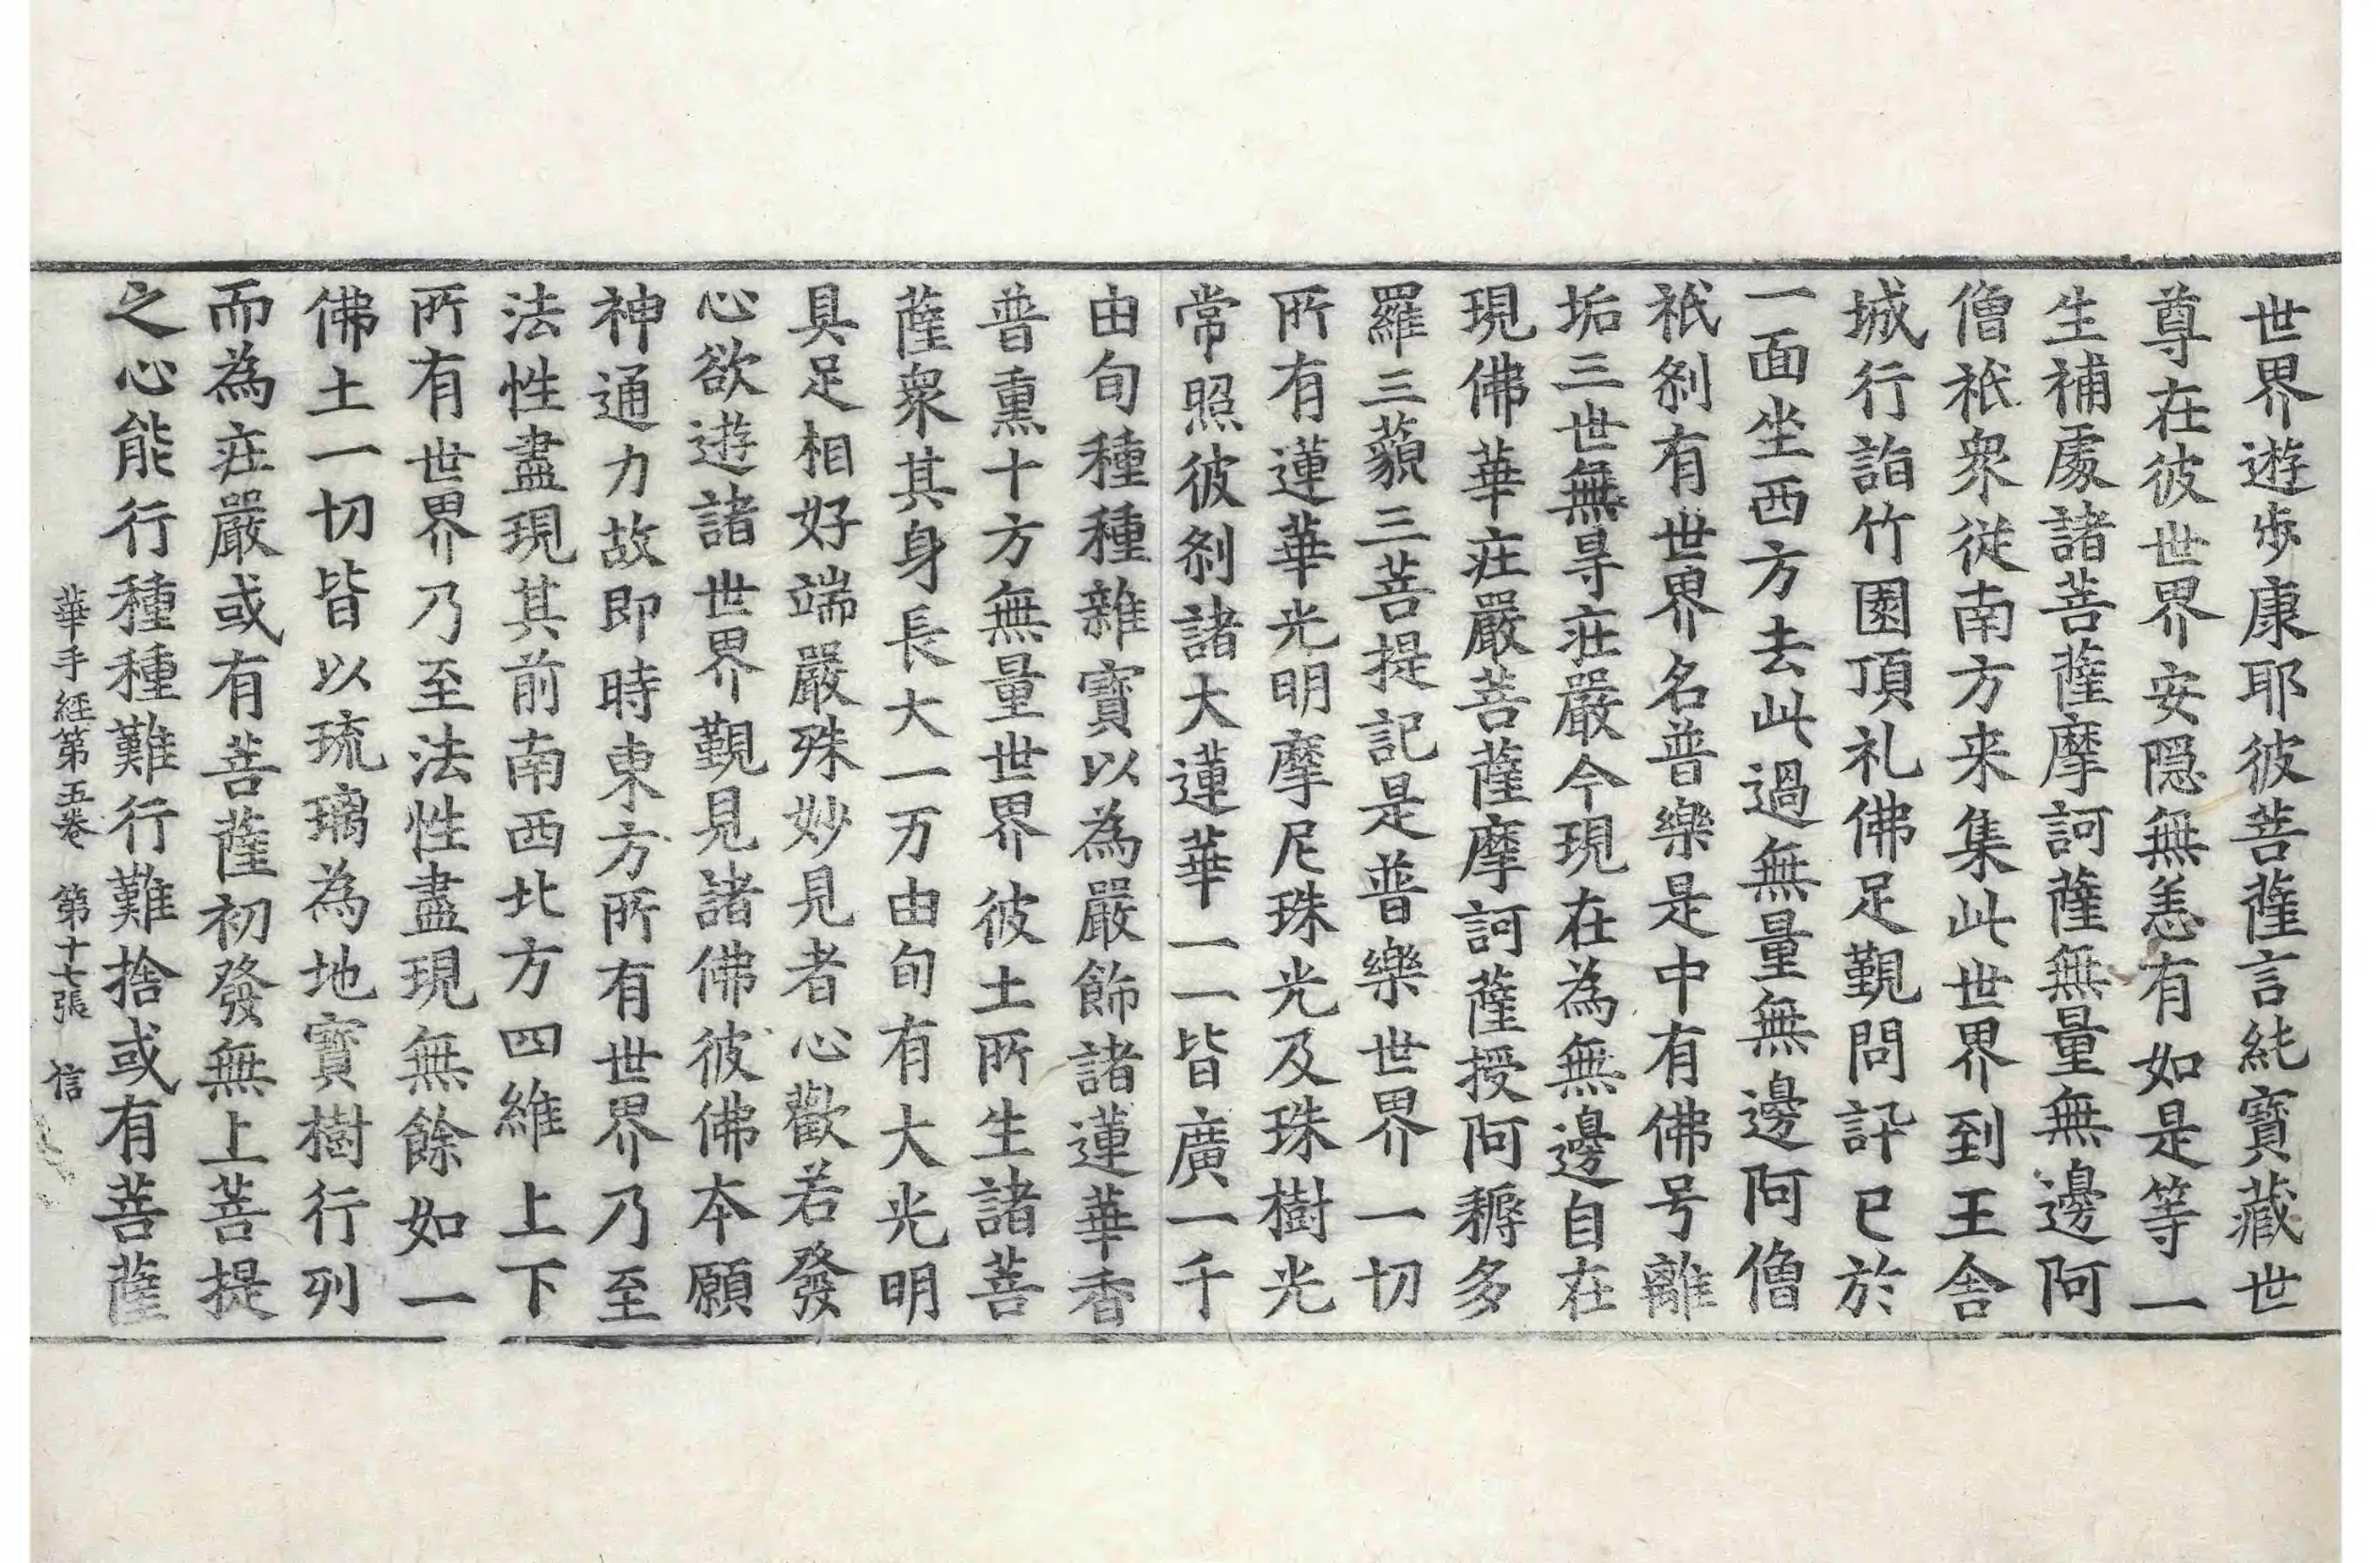 世界遊步康耶彼菩薩言純寶藏世
尊在彼世界安隠無恙有如是等一
生補䖏諸菩薩摩訶薩無量無邊阿
僧祇衆從南方来集此世界到王舍
城行詣竹園頂礼佛足覲問訊已於
一面坐西方去此過無量無邊阿僧
祇剎有世界名普樂是中有佛号離
垢三世無㝵莊嚴今現在為無邊自在
現佛華莊嚴菩薩摩訶薩授阿耨多
羅三藐三菩提記是普樂世界一切
所有蓮華光明摩尼珠光及珠樹光
常照彼剎諸大蓮華一一皆廣一千
由旬種種雜寶以為嚴飾諸蓮華香
普熏十方無量世界彼土所生諸菩
薩衆其身長大一万由旬有大光明
具足相好端嚴殊妙見者心歡若發
心欲遊諸世界覲見諸佛彼佛本願
神通力故即時東方所有世界乃至
法性盡現其前南西北方四維上下
所有世界乃至法性盡現無餘如一
佛土一切皆以琉璃為地寶樹行列
而為莊嚴或有菩薩初發無上菩提
之心能行種種難行難捨或有菩薩
華手経第五卷　第十七張　信